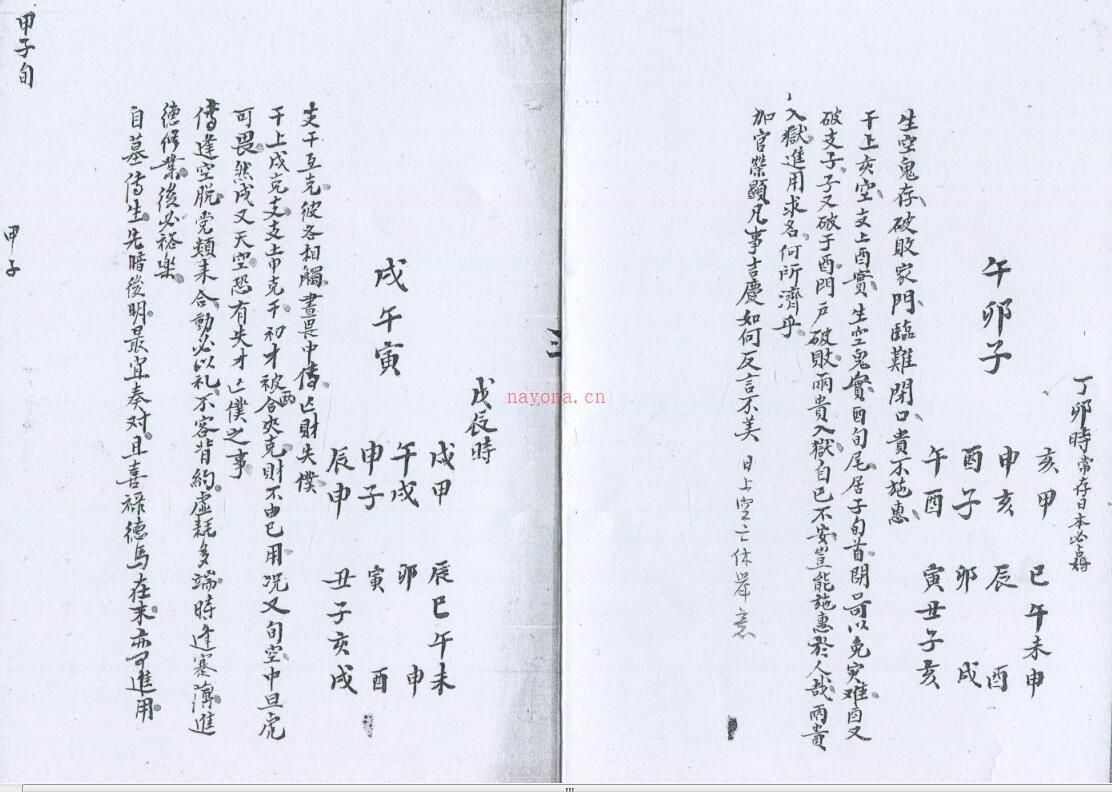 丁卯時常存日本必壽
亥甲
申亥
酉子
午酉
巳午未申
辰 酉
卯 戌
寅丑子亥
午卯子
生空鬼存破敗家門臨難閉口貴不施惠
干上亥空支上酉實生空鬼實酉旬尾居子旬首閉口可以免灾难酉又
破支子子又破于酉門戶破敗兩貴入獄自已不安豈能施惠於人哉兩貴
入獄進用求名何所濟乎
加官榮顯凡事吉慶如何反言不美 日上空亡休舉意
三
戊辰時
戌甲
午戌
申子
辰申
辰巳午未
卯 申
寅 酉
丑子亥戌
戌午寅
支干互克彼各相觸晝畏中傳亡財失僕
干上戌克支支上申克干初才被合夾克財不由已用況又旬空中旦虎
两
可畏然戌又天空恐有失才亡僕之事
傳逢空脫党類来合動必以礼不容背約虛耗多端時逢蹇薄進
德修業後必裕樂
自墓傳生先暗後明最宜奏对且喜祿德馬在末亦可進用
甲子旬
甲子
nayona.cn